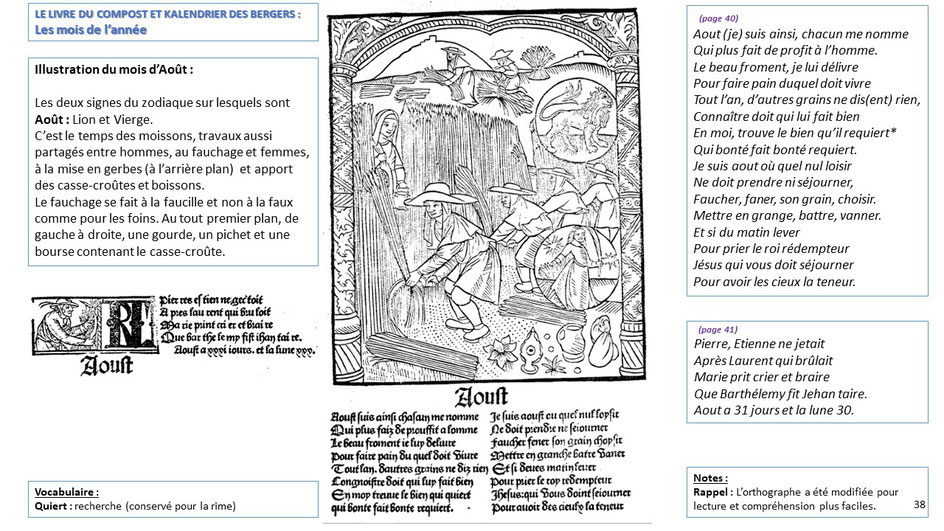 LE LIVRE DU COMPOST ET KALENDRIER DES BERGERS :
Les mois de l'année
Illustration du mois d'Août :
Les deux signes du zodiaque sur lesquels sont
Août : Lion et Vierge.
C'est le temps des moissons, travaux aussi
partagés entre hommes, au fauchage et femmes,
à la mise en gerbes (à l'arrière plan)  et apport
des casse-croûtes et boissons.
Le fauchage se fait à la faucille et non à la faux
comme pour les foins. Au tout premier plan, de
gauche à droite, une gourde, un pichet et une
bourse contenant le casse-croûte.
Pier res et tien ne get toit
A pres lau rent qui bru soit
Ma rie print cri er et brai re
Que bar the le mp fist ihan tai re.
Aoust a xxxi iours. et la lune xxx.
Aoust
Vocabulaire :
Quiert : recherche (conservé pour la rime)
Aoust
Aoust suis ainsi chascun me nomme
Qui plus faiz de prouffit a lomme
Le beau froment ie luy deliure
Pour faire pain du quel doit viure
Tout lan. dautres grains ne diz rien
Congnoistre doit qui luy fait bien
En moy treuue le bien qui quiert
qui bonte fait bonte requiert.
Je suis aoust ou quel nul loysir
Ne doit prendre ne seiourner
Faucher fener son grain choysir
Mettre en granche batre vaner
Et si deues matin leuer
Pour prier le roy redempteur
Jhesus: qui vous doint seiourner
Pour auoir des cieulx la teneur.
(page 40)
Aout (je) suis ainsi, chacun me nomme
Qui plus fait de profit à l'homme.
Le beau froment, je lui délivre
Pour faire pain duquel doit vivre
Tout l'an, d'autres grains ne dis(ent) rien,
Connaître doit qui lui fait bien
En moi, trouve le bien qu'il requiert*
Qui bonté fait bonté requiert.
Je suis aout où quel nul loisir
Ne doit prendre ni séjourner,
Faucher, faner, son grain, choisir.
Mettre en grange, battre, vanner.
Et si du matin lever
Pour prier le roi rédempteur
Jésus qui vous doit séjourner
Pour avoir les cieux la teneur.
(page 41)
Pierre, Etienne ne jetait
Après Laurent qui brûlait
Marie prit crier et braire
Que Barthélemy fit Jehan taire.
Aout a 31 jours et la lune 30.
Notes :
Rappel : L'orthographe a été modifiée pour
lecture et compréhension plus faciles.
38